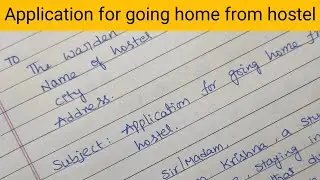 Application for going home from hostel
To
The warden
Name of hostel
City
Address.
Subject: Application for going home
hostel.
Sir/Madam,
Krishna, a
staying in
that